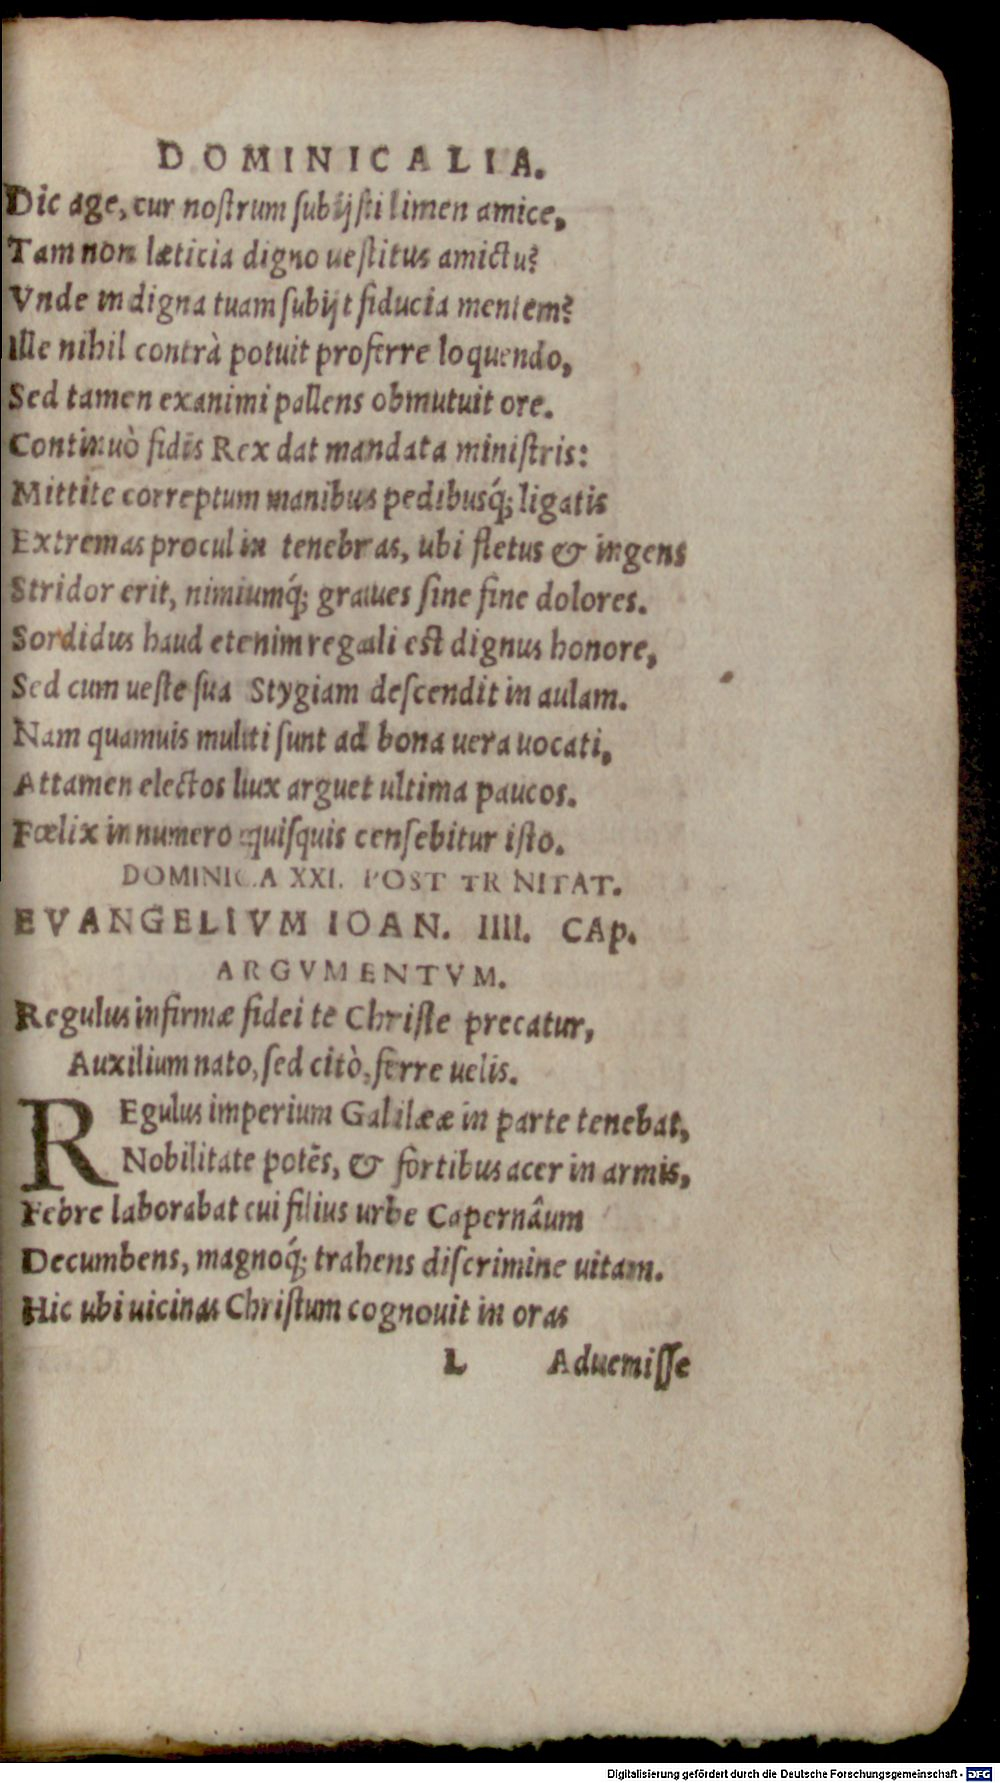 DOMINICALIA.
Dic age, cur noſtrum ſubijſti limen amice,
Tam non læticia digno ueſtitus amictu?
Vnde indigna tuam ſubijt fiducia mentem?
Ille nihil contrà potuit proferre loquendo,
Sed tamen exanimi pallens obmutuit ore.
Continuò fidis Rex dat mandata miniſtris:
Mittite correptum manibus pedibusq́; ligatis
Extremas procul in tenebras, ubi fletus & ingens
Stridor erit, nimiumq́; graues ſine fine dolores.
Sordidus haud etenim regali est dignus honore,
Sed cum ueſte ſua Stygiam deſcendit in aulam.
Nam quamuis multi ſunt ad bona uera uocati,
Attamen electos lux arguet ultima paucos.
Fœlix in numero quiſquis cenſebitur iſto.
DOMINICA XXI. POST TRINITAT.
EVANGELIVM IOAN. IIII. CAp.
ARGVMENTVM.
Regulus infirmæ fidei te Chriſte precatur,
Auxilium nato, ſed citò, ferre uelis.
REgulus imperium Galilææ in parte tenebat,
Nobilitate potẽs, & fortibus acer in armis,
Febre laborabat cui filius urbe Capernâum
Decumbens, magnoq́; trahens diſcrimine uitam.
Hic ubi uicinas Chriſtum cognouit in oras
L Aduemiſſe
Digitalisierung gefördert durch die Deutsche Forschungsgemeinschaft - DFG